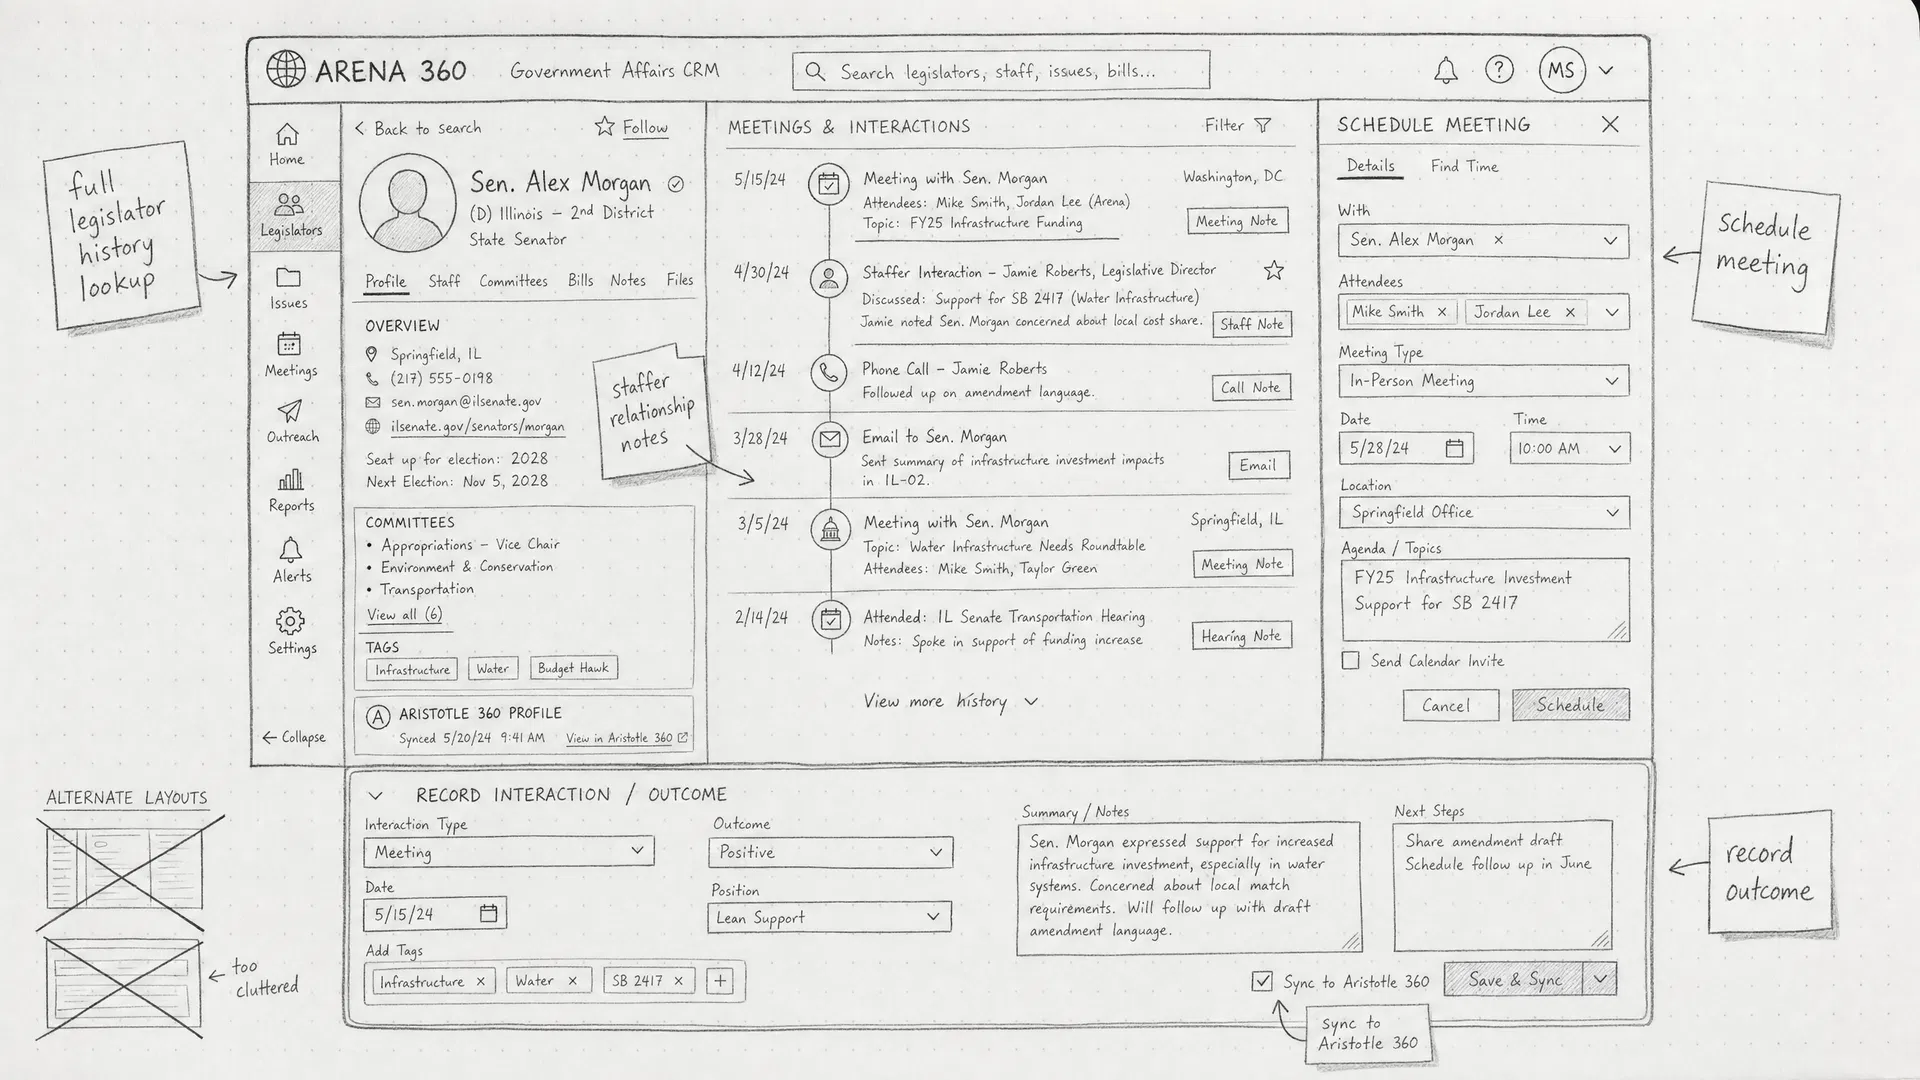 ARENA 360
Government Affairs CRM
Search legislators, staff, issues, bills...
?
MS
full
legislator
history
lookup
Home
Legislators
Issues
Meetings
Outreach
Reports
Alerts
Settings
← Collapse
Back to search
Follow
Sen. Alex Morgan
(D) Illinois – 2nd District
State Senator
Profile Staff Committees Bills Notes Files
OVERVIEW
Springfield, IL
(217) 555-0198
sen.morgan@ilsenate.gov
ilsenate.gov/senators/morgan
Seat up for election: 2028
Next Election: Nov 5, 2028
COMMITTEES
• Appropriations – Vice Chair
• Environment & Conservation
• Transportation
View all (6)
TAGS
Infrastructure Water Budget Hawk
A ARISTOTLE 360 PROFILE
Synced 5/20/24 9:41 AM View in Aristotle 360
staffer
relationship
notes
MEETINGS & INTERACTIONS
Filter
5/15/24
Meeting with Sen. Morgan
Washington, DC
Attendees: Mike Smith, Jordan Lee (Arena)
Topic: FY25 Infrastructure Funding
Meeting Note
4/30/24
Staffer Interaction – Jamie Roberts, Legislative Director
Discussed: Support for SB 2417 (Water Infrastructure)
Jamie noted Sen. Morgan concerned about local cost share.
Staff Note
4/12/24
Phone Call – Jamie Roberts
Followed up on amendment language.
Call Note
3/28/24
Email to Sen. Morgan
Sent summary of infrastructure investment impacts
in IL-02.
Email
3/5/24
Meeting with Sen. Morgan
Springfield, IL
Topic: Water Infrastructure Needs Roundtable
Attendees: Mike Smith, Taylor Green
Meeting Note
2/14/24
Attended: IL Senate Transportation Hearing
Notes: Spoke in support of funding increase
Hearing Note
View more history
SCHEDULE MEETING
Details Find Time
With
Sen. Alex Morgan ×
Attendees
Mike Smith × Jordan Lee ×
Meeting Type
In-Person Meeting
Date Time
5/28/24 10:00 AM
Location
Springfield Office
Agenda / Topics
FY25 Infrastructure Investment
Support for SB 2417
Send Calendar Invite
Cancel Schedule
Schedule
meeting
RECORD INTERACTION / OUTCOME
Interaction Type
Meeting
Date
5/15/24
Add Tags
Infrastructure × Water × SB 2417 × +
Outcome
Positive
Position
Lean Support
Summary / Notes
Sen. Morgan expressed support for increased
infrastructure investment, especially in water
systems. Concerned about local match
requirements. Will follow up with draft
amendment language.
Next Steps
Share amendment draft
Schedule follow up in June
Sync to Aristotle 360
Save & Sync
sync to
Aristotle 360
record
outcome
ALTERNATE LAYOUTS
too
cluttered